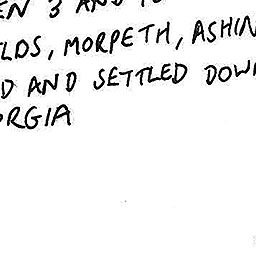 EN 3 AND 10
LDS, MORPETH, ASHIN
D AND SETTLED DOW
ORGIA